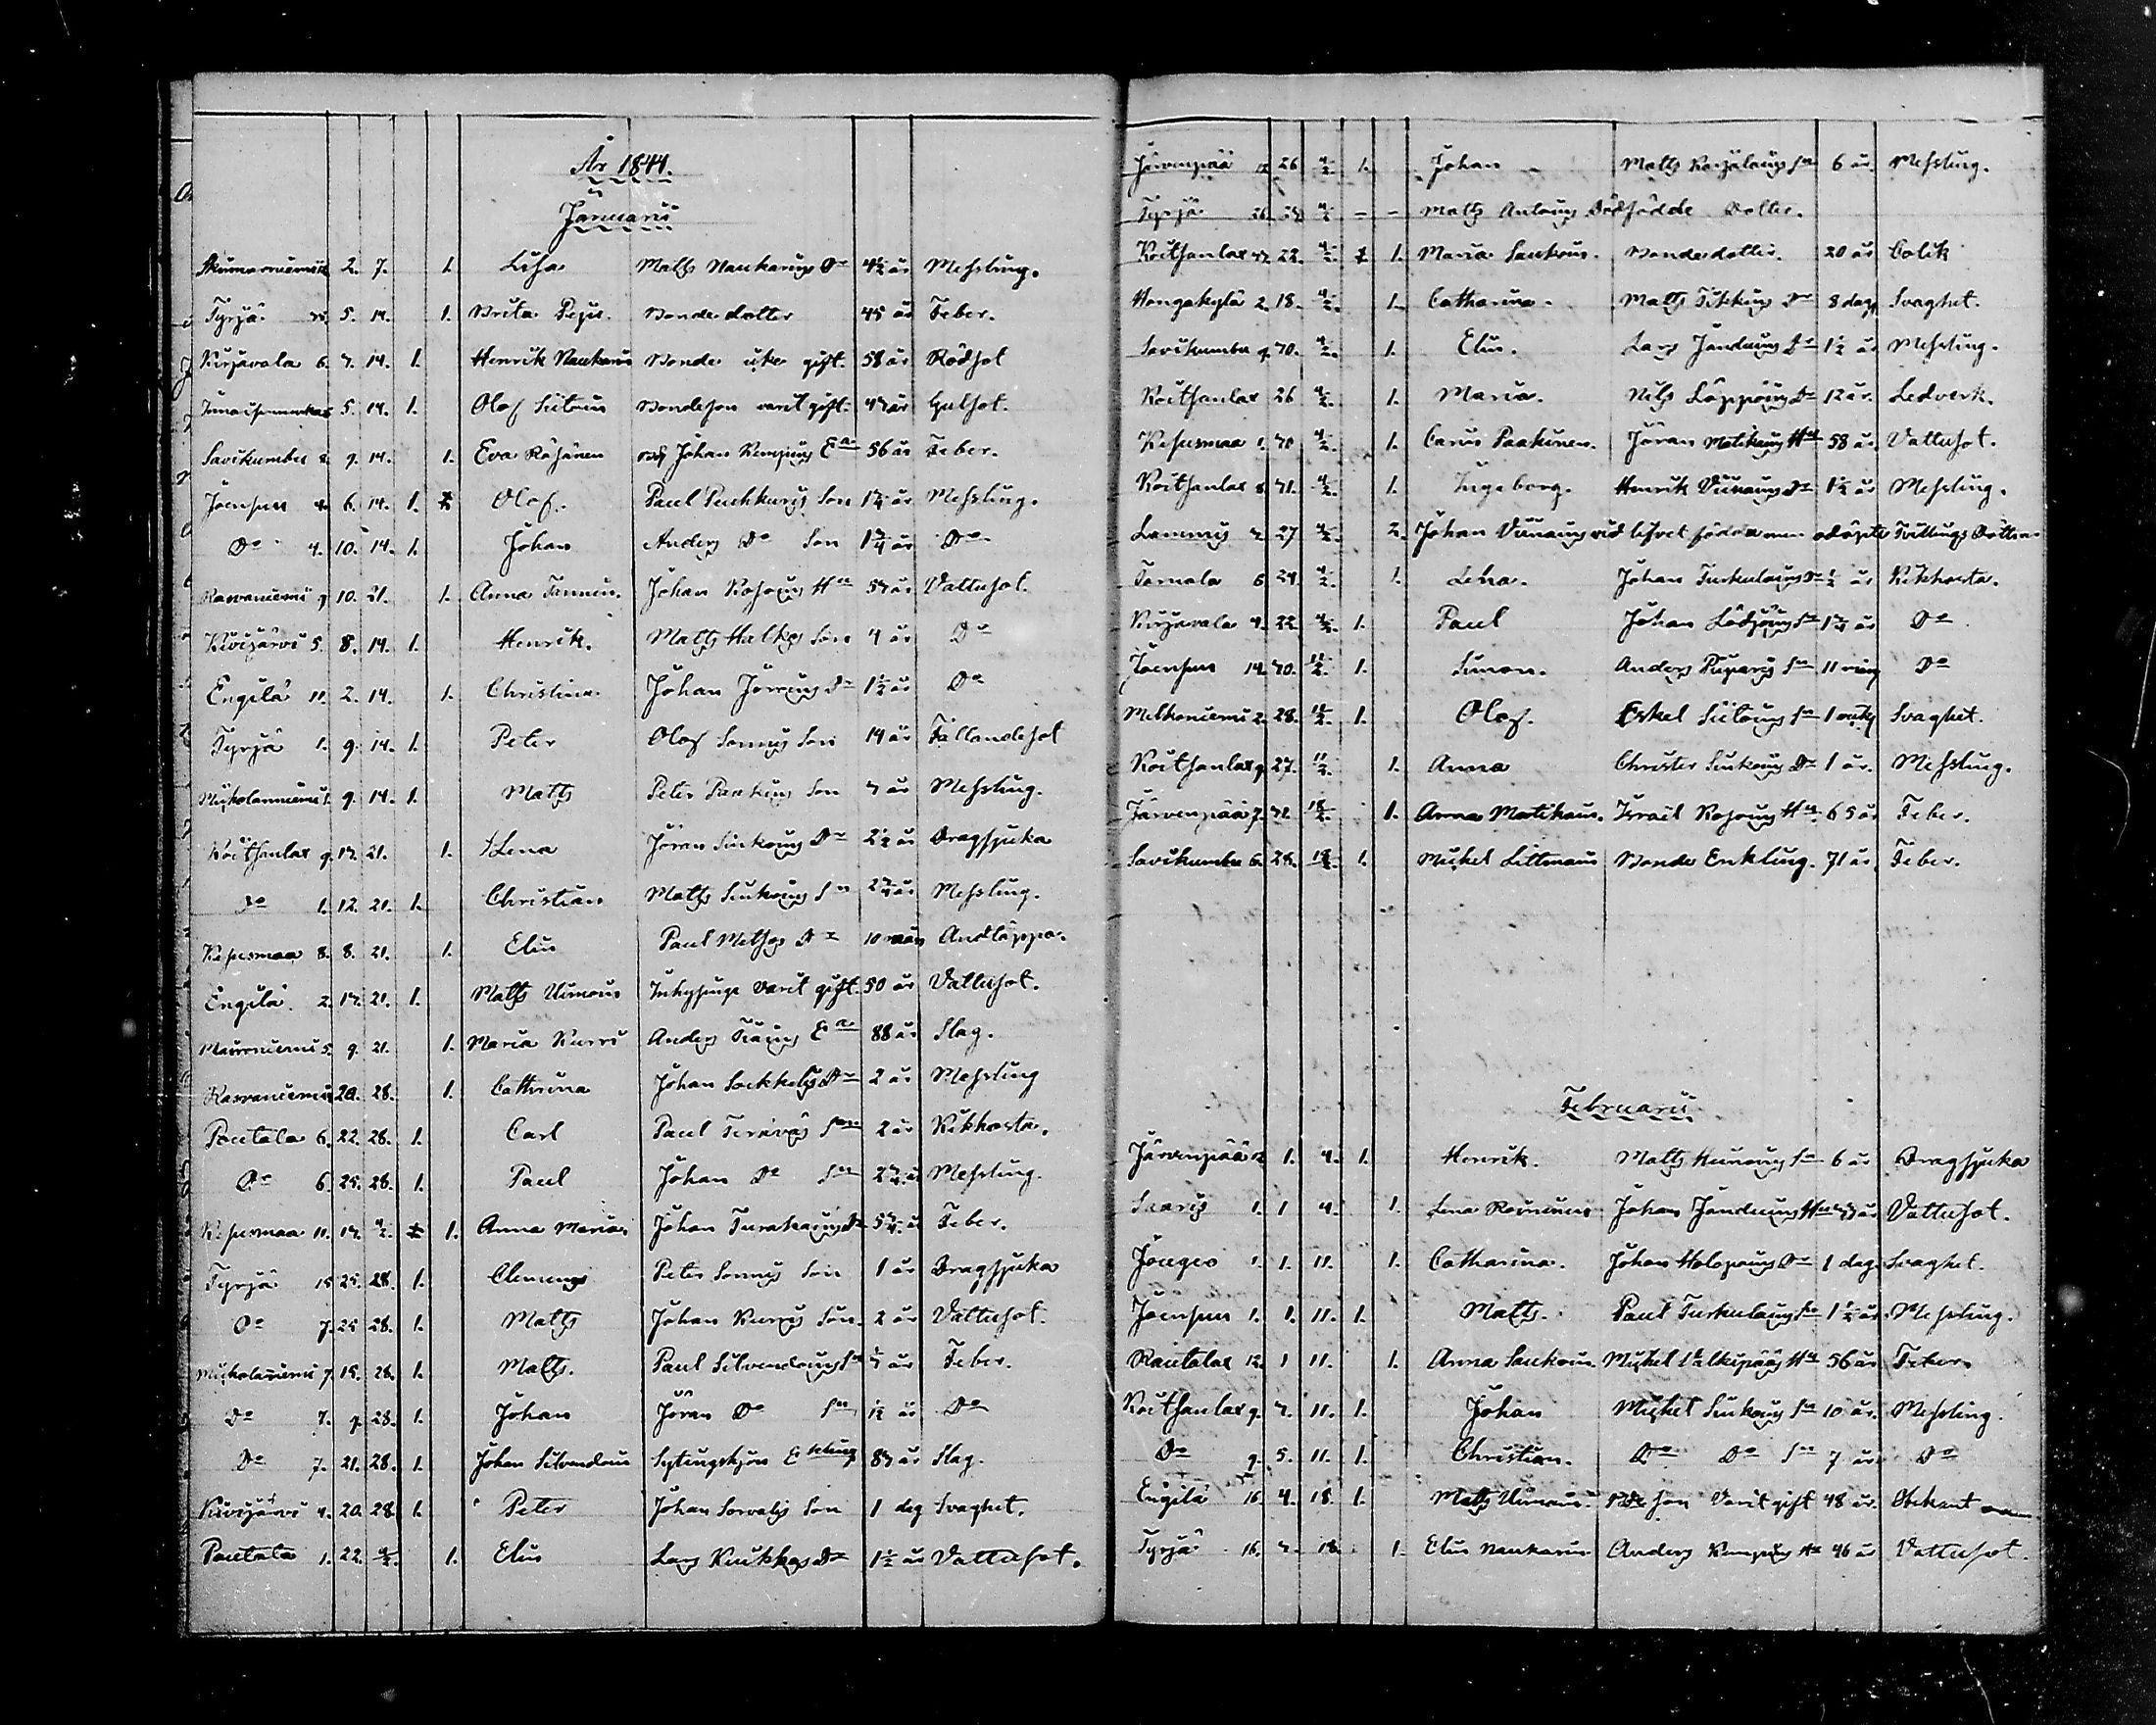 År 1844.
Januarii
2. 7. 1. Lisa Matts Naukarins Dr 4½ år Messling.
Tyrjä 5. 14. 1. Brita Peju. Bondedotter 45 år Feber.
Kirjavala 6. 7. 14. 1. Henrik Naukarin Bonde icke gift. 58 år Rödsot
5. 14. 1. Olof Siitoin Bondeson varit gift. 47 år Gulsot.
Savikumbu 8. 9. 14. 1. Eva Räsänen Johan Kempins Ea 56 år Feber.
Joensuu 4. 6. 14. 1. Olof. Paul Puhkuris Son 1¼ år Messling.
Do 4. 10. 14. 1. Johan Anders Do Son 1¾ år Do
Rasvaniemi 9 10. 21. 1. Anna Tannin. Johan Kosoins Hu 57 år Vattusot.
Kivijärvi 5. 8. 14. 1. Henrik. Matts Halkos Son 4 år Do
Engilä 11. 2. 14. 1. Christina Johan Dr 1½ år Do
Tyrjä 1. 9. 14. 1. Peter Olof Sonnys Son 14 år Fallandesot
9. 14. 1. Matts Peter Son 7 år Messling.
Koitsanlax 9. 17. 21. 1. Lena Jöran Sinkoins Dr 2½ år Bragsjuka
Do 1. 12. 21. 1. Christian Matts Sinkoins Sn 2¾ år Messling.
Kesusmaa 8. 8. 21. 1. Elin Paul Metsos Dr 10 mån Andtäppa.
Engilä 2. 17. 21. 1. Matts Uimoin Inhysinge varit gift. 50 år Vattusot.
5. 9. 21. 1. Maria Kurri Anders Ea 88 år Slag.
Rasvaniemi 20. 28. 1. Cathrina Johan Sockkelis Dr 2 år Messling
Poutala 6. 22. 28. 1. Carl Paul Teräväs Son 2 år Kikhosta.
Do 6. 25. 28. 1. Paul Johan Do Sn 2¾ år Messling.
Kesusmaa 11. 17. 4/2. 1. Anna Maria. Johan Dr 5¾ år Feber.
Tyrjä 15 25. 28. 1. Clemens Peter Sonnys Son 1 år Bragsjuka
Do 7. 25 28. 1. Matts Johan Kurris Son. 2 år Vattusot.
Mickolaniemi 7. 15. 28. 1. Matts. Paul Silvendoins Sn år Feber.
Do 7. 9. 28. 1. Johan Jöran Do Sn ½ år Do
Do 7. 21. 28. 1. Johan Silvendoin Sytingshjon Enkling 87 år Slag.
Kivijärvi 4. 20. 28. 1. Peter Johan Sorvalis Son 1 dag Svaghet.
Poutala 1. 22. 4/2. 1. Elin Lars Kukkos Dr 1½ år Vattusot.
Järvenpää 12 26 4/2 1. Johan Matts Karjalains Sn 6 år Messling.
Tyrjä 26 29 4/2 – – Matts Antoins Dödfödde Dotter.
Koitsanlax 22. 4/2. 1. Maria Saukoin. Bondedotter. 20 år Colik
Hongakylä 2. 18. 4/2. 1. Catharina. Matts Tikkins Dr 8 dag Svaghet.
Savikumbu 9. 30. 4/2. 1. Elin. Lars Janduins Dr 1½ år Messling.
Koitsanlax 26 4/2. 1. Maria. Nils Läppöins Dr 12 år. Ledverk.
Kesusmaa 1. 30 4/2. 1. Carin Paakinen. Jöran Matikains Hu 58 år Vattusot.
Koitsanlax 8. 31. 4/2. 1. Ingeborg. Henrik Dr 1½ år Messling.
Lammis 7. 27 4/2. 2. Johan vid lifvet födda men odöpte Tvillings Döttrar
Tarnala 6 29 4/2. 1. Lena. Johan Turkulains Dr ½ år Kikhosta.
Kirjavala 4. 22. 4/2. 1. Paul Johan Sn 1¾ år Do
Joensuu 14. 30. 11/2. 1. Simon. Anders Piiparis Sn 11 mån Do
Melkoniemi 2. 28. 11/2. 1. Olof. Eskel Siitoins Sn 1 vecka Svaghet.
Koitsanlax 9. 27. 11/2. 1. Anna Christer Sinkoins Dr 1 år. Messling.
Järvenpää 7. 31. 18/2. 1. Anna Matikain. Israel Kosoins Hu 65 år Feber.
Savikumbu 6. 28. 18/2. 1. Mickel Littmain Bonde Enkling. 71 år. Feber.
Februarii
Järvenpää 1. 4. 1. Henrik. Matts Sn 6 år Bragsjuka
Saaris 1. 1 4. 1. Lena Roininen Johan Janduins Hu 43 år Vattusot.
Jouegio 1. 1. 11. 1. Catharina. Johan Holopains Dr 1 dag Svaghet.
Joensuu 1. 1. 11. 1. Matts. Paul Turkulains Sn 1½ år Messling.
Rautalax 12. 1 11. 1. Anna Saukoin Mickel Valkepääs Hu 56 år Feber.
Koitsanlax 9. 7. 11. 1. Johan Mickel Sinkoins Sn 10 år. Messling.
Do 9. 5. 11. 1. Christian. Do Do Sn 7 år Do
Engilä 16. 4. 18. 1. Matts Uimoin. Bdeson Varit gift 48 år. Obekant
Tyrjä 16. 7. 18. 1. Elin Naukarin Anders Kempins Hu 46 år Vattusot.